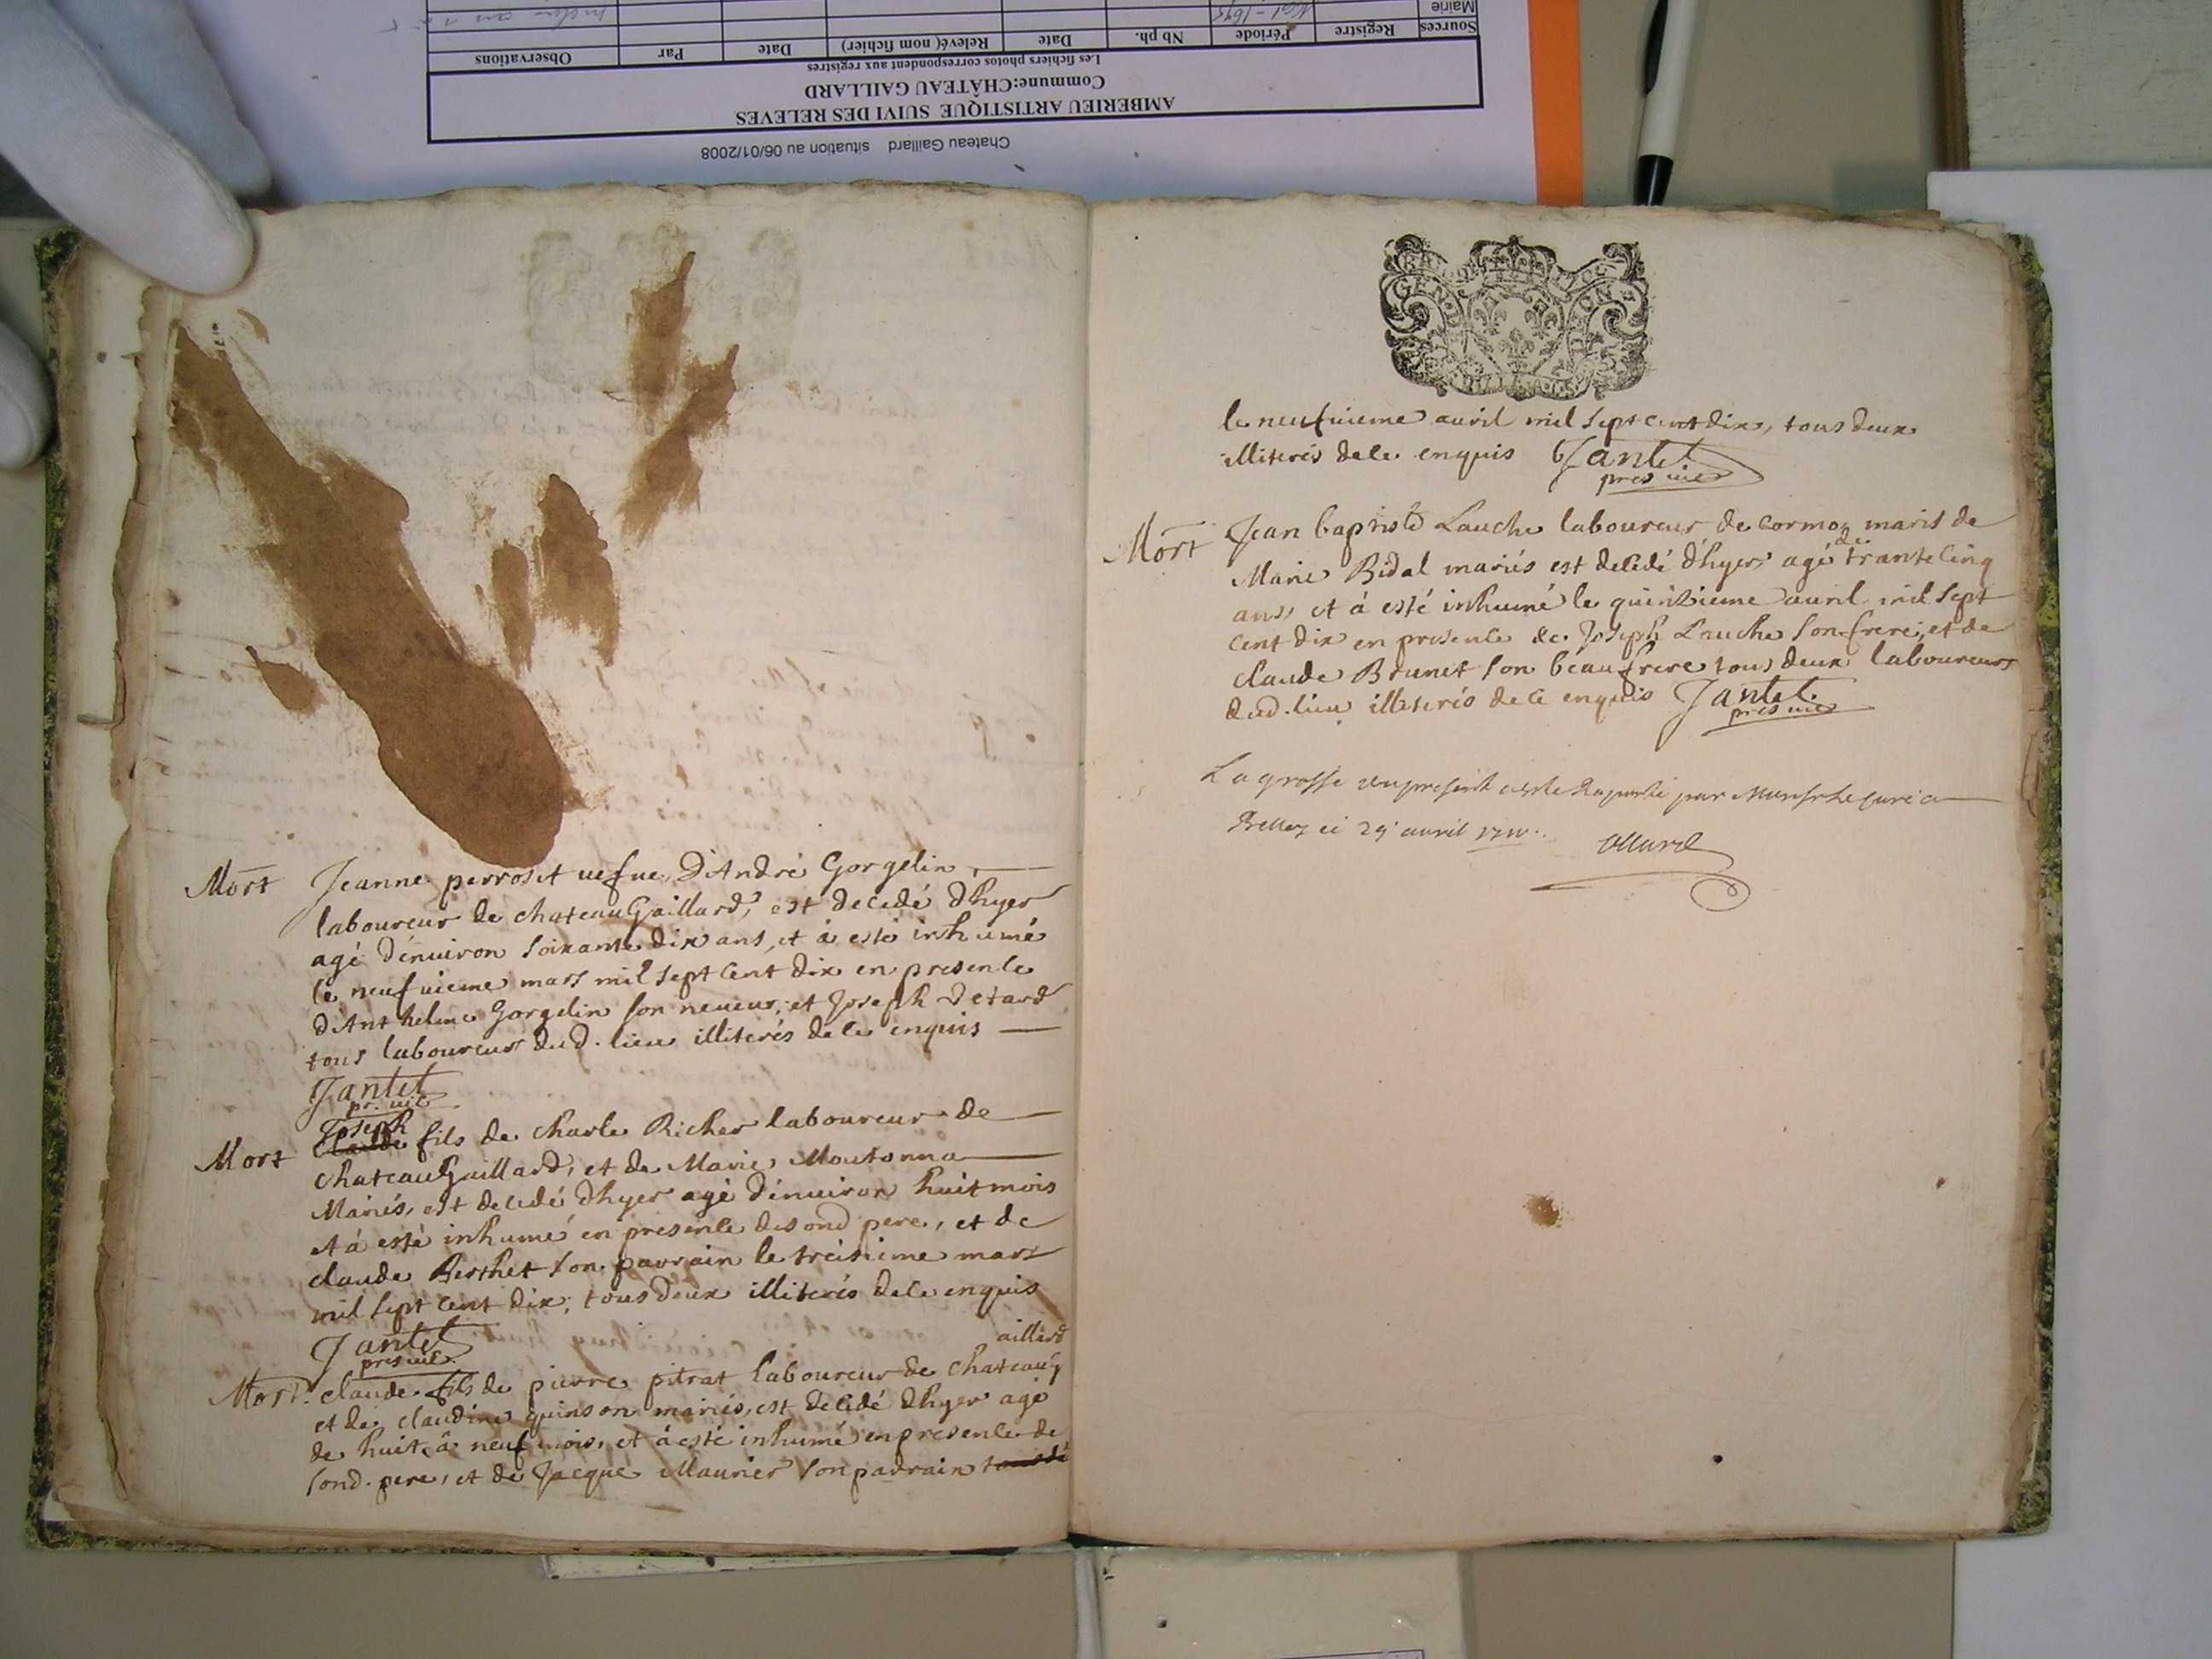 Chateau Gaillard situation au 06/01/2008
AMBERIEU ARTISTIQUE SUIVI DES RELEVES
Commune:CHÂTEAU GAILLARD
Les fichiers photos correspondent aux registres
Sources Registre Période Nb ph. Date Relevé( nom fichier) Date Par Observations
Mairie
Mort Jeanne perroset uefue D'André Gorgelin
laboureur de chateauGaillard, est decedé d'hyer
agé d'enuiron soixante dix ans, et à esté inhumé
le neufuieme mars mil sept cent dix en presence
d'Anthelme Gorgelin son neueur, et Joseph Detard
tous laboureurs dud. lieu illiterés de ce enquis
Jantet
pr. uic
Joseph
Mort Claude fils de charle Richer laboureur de
chateauGaillard, et de Marie Moutonna
Mariés, est decedé d'hyer agé d'enuiron huit mois
et à esté inhumé en presence de sond pere, et de
claude Berthet son parrain le treisieme mars
mil sept cent dix, tous deux illiterés de ce enquis
Jantet
pres uic
aillard
Mort. claude fils de pierre pitrat laboureur de chateaug
et de claudine quinson mariés, est decedé d'hyer agé
de huit à neuf mois, et à esté inhumé en presence de
sond. pere, et de Jacque Maurier son parrain
GEN ON
le neufuieme auril mil sept cent dix, tous deux
illiterés de ce enquis Jantet
pres uic
Mort Jean baptiste Lauche laboureur de cormoz maris de
de
Marie Bidal mariés est decedé d'hyer agé trante cinq
ans, et à esté inhumé le quinzieme auril mil sept
cent dix en presence de Joseph Lauche son frere, et de
claude Brunet son beaufrere tous deux laboureurs
dud. lieu illiterés de ce enquis Jantet.
pres uic
La grosse du present a este raporté par Monsr Le curé a
Belley ce 29 auril 1710.